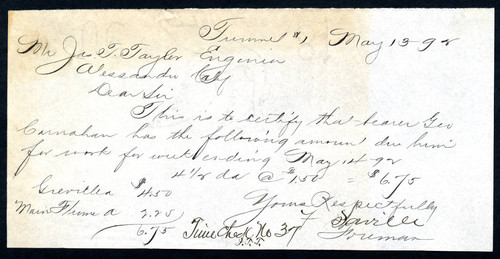 Tunnel #1 May 13-92
Mr Jas T. Taylor Enginer
Alessandro Calif
Dear Sir
This is to certify that bearer Geo
Carnahan has the following amount due him
for work for week ending May 14-92
4 1/2 da @ $1.50 = $6.75
Grevillea $4.50
Main Flume A 2.25
6.75
Yours Respectfully
F Saville
Foreman
Time Check No 37
J.T.T.